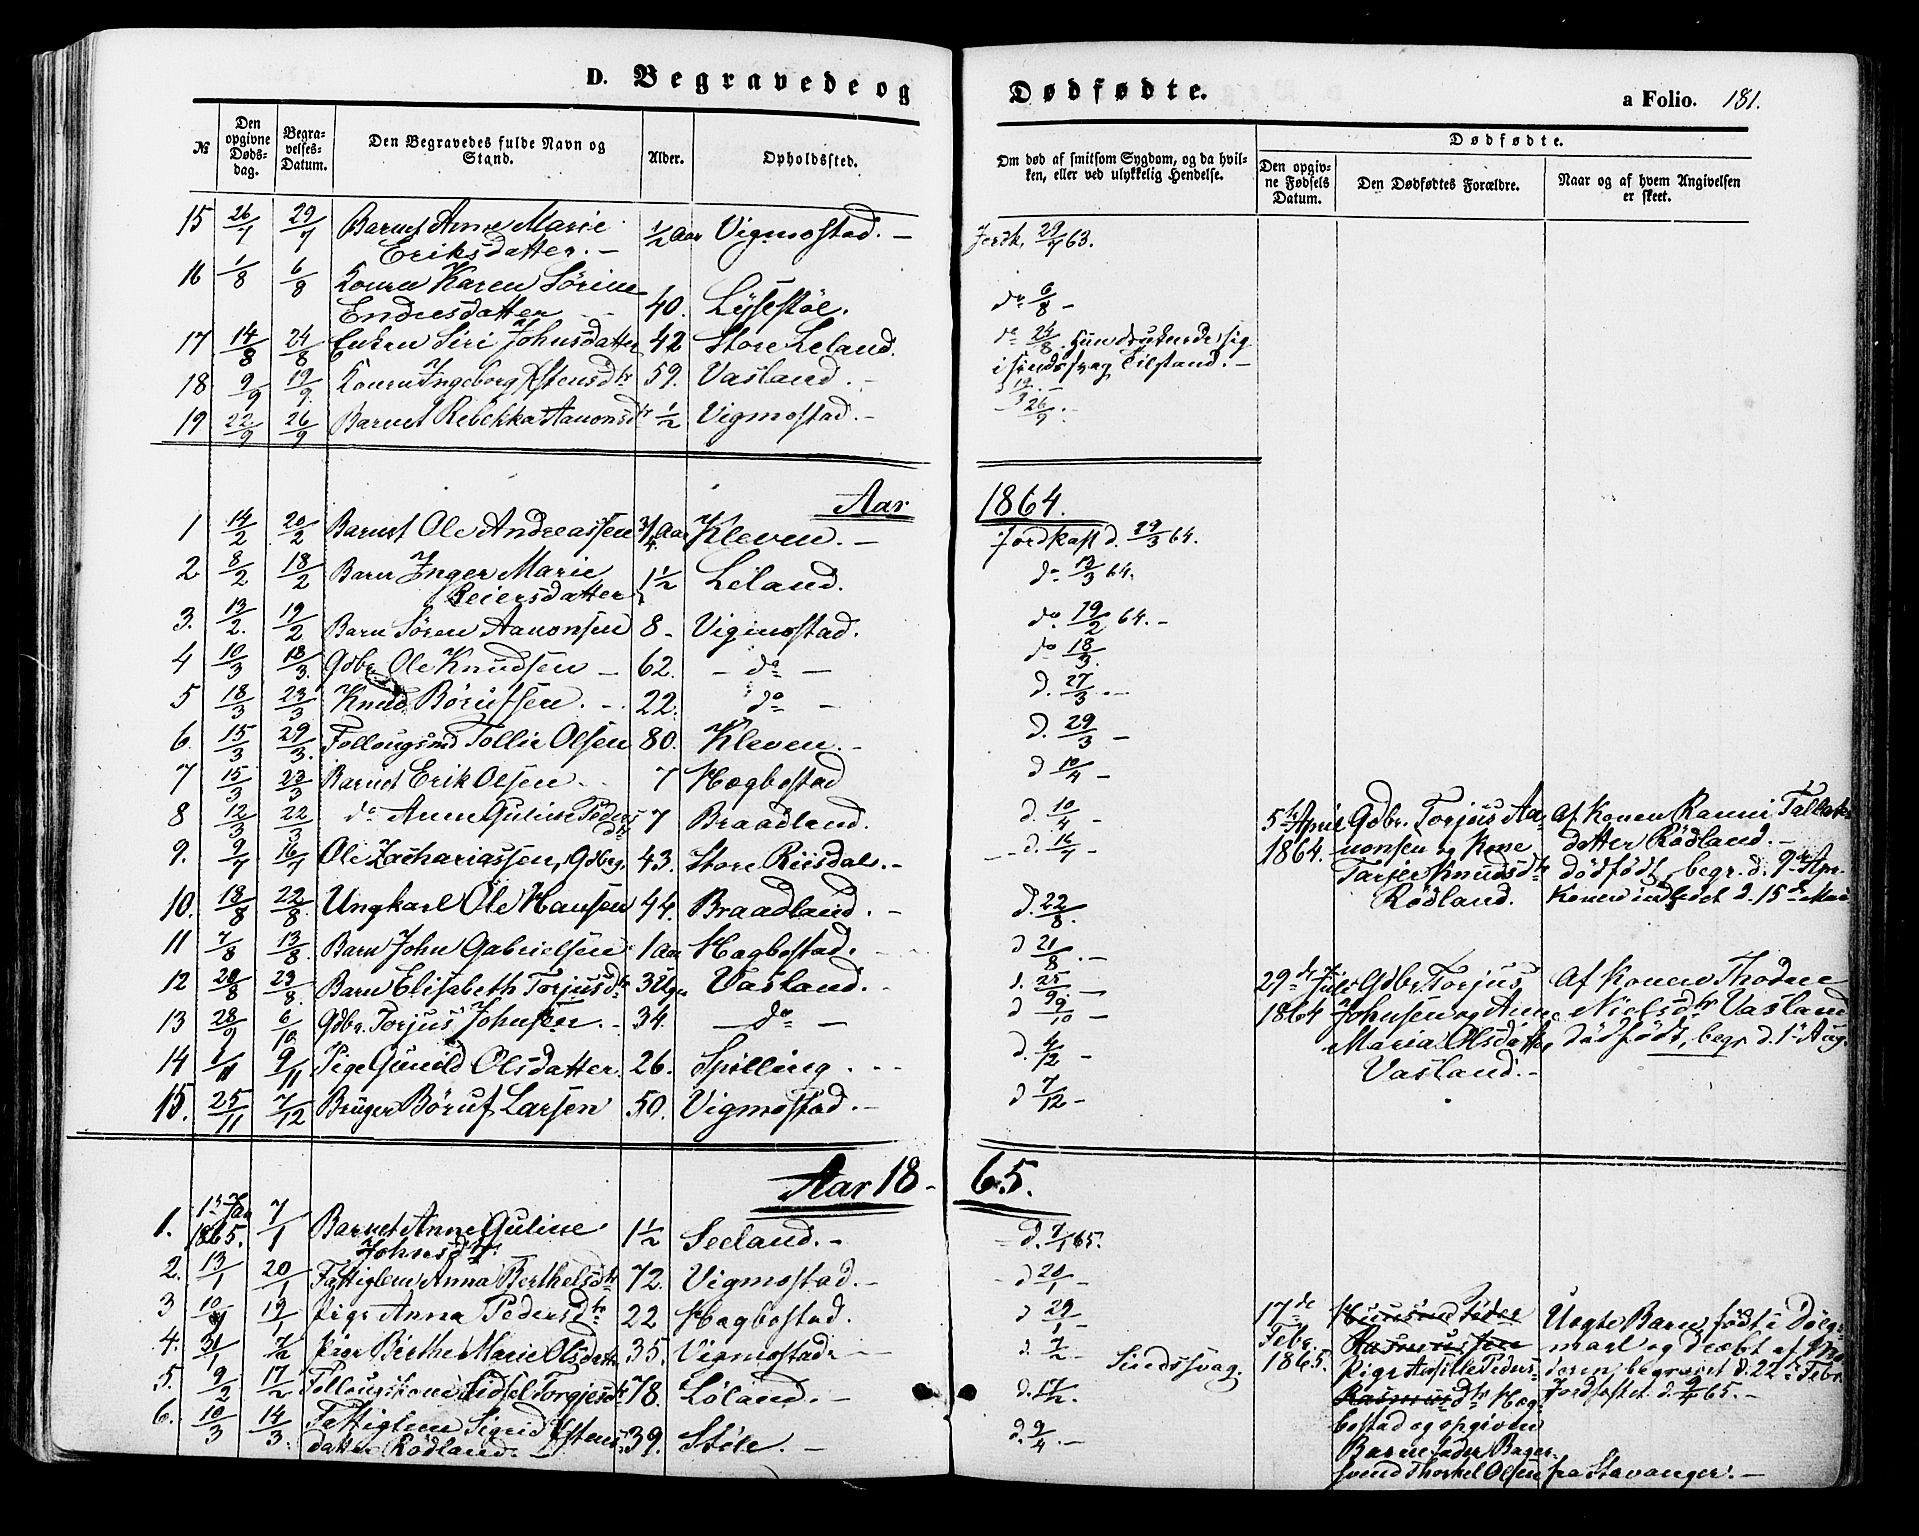 D. Begravede og Dødfødte. a Folio. 181.
№ Den opgivne Døds-dag. Begra-velses-Datum. Den Begravedes fulde Navn og Stand. Alder. Opholdssted. Om død af smitsom Sygdom, og da hvil-ken, eller ved ulykkelig Hendelse. Dødfødte.
Den opgiv-ne Fødsels Datum. Den Dødfødtes Forældre. Naar og af hvem Angivelsen er skeet.
15 26/7 29/7 Barnet Anne Marie 1/2 Aar Vigmostad. - Jordk. 29/7 63.
Eriksdatter. -
16 1/8 6/8 Konen Karen Sörine
Endresdatter 40. Lysestöl. do 6/8 -
17 14/8 24/8 Enken Siri Johnsdatter 42 Store Leland. do 24/8. Hun druknede sig
i sindssvag Tilstand. -
18 9/9 19/9. Konen Ingeborg Østensdtr 59. Vasland. - 19/9. -
19 22/9 26/9 Barnet Rebekka Aanonsdtr 1/2 Vigmostad. - 26/9. -
Aar 1864.
1 14/2 20/2 Barnet Ole Andreassen 3/4 Aar Kleven. - Jordkast d. 29/3 64.
2 8/2 18/2 Barn Inger Marie 1 1/2 Leland. do 12/3 64.
Reiersdatter
3. 13/2. 19/2 Barn Sören Aanonsen 8 - Vigmostad. do. 19/2 64. -
4 10/3 18/3. Gdbr Ole Knudsen - 62. - do - do 18/3.
5 18/3 23/3 Knud Börufsen. - 22. do - d. 27/3. -
6. 15/3 29/3. Follougsmd Tollie Olsen 80. Kleven. - d. 29/3 -
7 15/3 23/3 Barnet Erik Olsen - 7 Hægbostad d 10/4 -
8 12/3 22/3 do Anne Guline Peders dtr 7 Braadland. d. 10/4 -
9. 9/4 16/4 Ole Zachariassen, Gdbrg. 43. Store Riisdal. - d. 16/4 -
10. 18/8 22/8. Ungkarl Ole Hansen 44. Braadland. - d. 22/8.
11 7/8 13/8. Barn John Gabrielsen 1 Aar Hægbostad. d 21/8. -
12 20/8 23/8. Barn Elisabeth Torjusdtr 3 Ugr Vasland. - d. 25/9 -
13 28/9 6/10 Gdbr. Torjus Johnsen. - 34. - do - d 9/10 -
14 1/11 9/11 Pige Gunild Olsdatter. 26. Spilling. d. 4/12 -
15. 25/11 7/12 Bruger Böruf Larsen 50. Vigmostad. - d 7/12 -
5te April Gdbr. Torjus Aa- Af Konen Ranni
1864. nonsen og Kone datter Rödland. -
Tarjer Knudsdtr dödfödt, begr. d. 9de Apr.
Rödland. Konen indledet d. 15de Mai
29de Juli Gdbr Torjus Af Konen Thodne
1864 Johnsen og Anne Nielsdtr Vasland
Maria Olsdatter dödfödt, begr d. 1te Aug.
Vasland. -
Aar 1865.
1. 1ste Jan 1865. 7/1 Barnet Anne Guline 1 1/2 Seeland. - d. 7/1 65.
Johnsdtr.
2. 13/1 20/1 Fattiglem Anna Berthelsdtr 72. Vigmostad. - d 20/1 -
3 10/1 19/1 Pige Anna Pedersdtr 22 Hægbostad. d 29/1 -
4. 31/1 7/2 Pige Birthe Marie Olsdatter 35. Vigmostad. - d. 7/2 - Sindssvag.
5. 9/2 17/2 Follougskone Sidsel Torgjesdtr 78. Löland. - d. 17/2.
6. 10/3 14/3. Fattiglem Sigrid Østens- 39. Stöle. - d. 9/4. -
datter Rödland. -
17de Huusmd Peder Uægte Barn födt i Dölgs-
Febr. Rasmussen maal og dræbt af Mo-
1865. Pige Assille Peders- deren, begravet d. 22de Febr.
Rasmus dtr Hæg- Jordfæstet d. 9/4 65. -
bostad og opgiven
Barnefader Bager-
svend Thorkel Olsen fra Stavanger. -